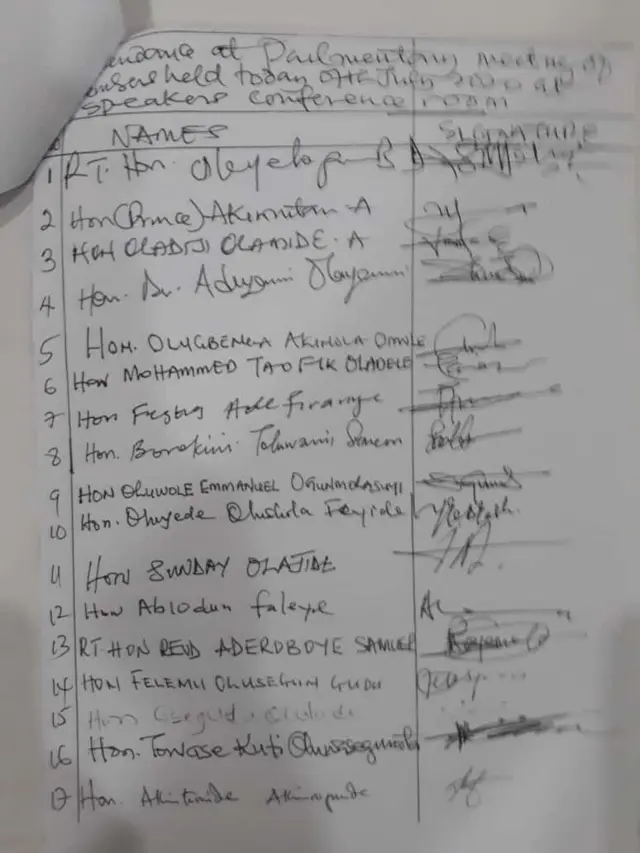 at Parliamentary meeting of
held today 9th July 2020 at
speakers conference room
NAMES SIGNATURE
1 RT. Hon. Oleyelogun B
2 Hon (Prince) Akinrutan A
3 HON OLADIJI OLAMIDE. A
4 Hon. Dr. Aduyanmi Olayanmi
5 HON. OLUGBENGA AKINOLA OMOLE
6 HON MOHAMMED TAOFIK OLADELE
7 Hon Festus Adefiranye
8 Hon. Borokini Toluwani Simeon
9 HON OLUWOLE EMMANUEL OGUNMOLASUYI
10 Hon. Oluyede Olushola Feyide
11 HON SUNDAY OLAJIDE
12 Hon Abiodun faleye
13 RT HON REVD ADEROBOYE SAMUEL
14 HON FELEMU OLUSEGUN GUDU
15 Hon
16 Hon. Towase Kuti Oluwasegunota
17 Hon. Akintunde Akinropude